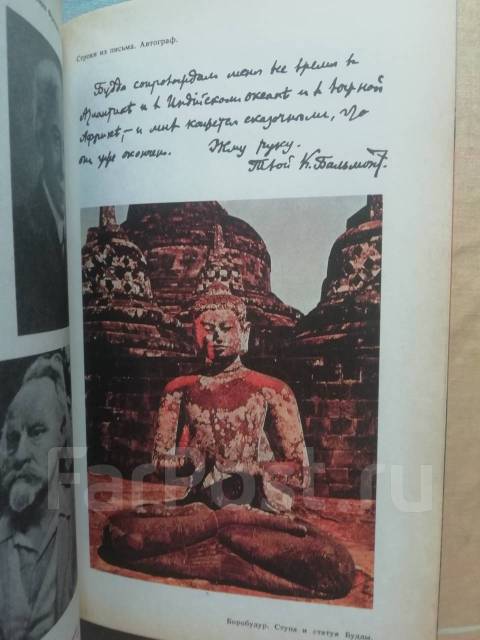 Строки из письма. Автограф.
Будда сопровождал меня все время в
Атлантикѣ и в Индийском океанѣ и в
Африкѣ, – и мнѣ кажется сказочным, что
он уже окончен. Жму руку.
Твой К. Бальмонт.
Боробудур. Ступа и статуя Будды.
FarPost.ru